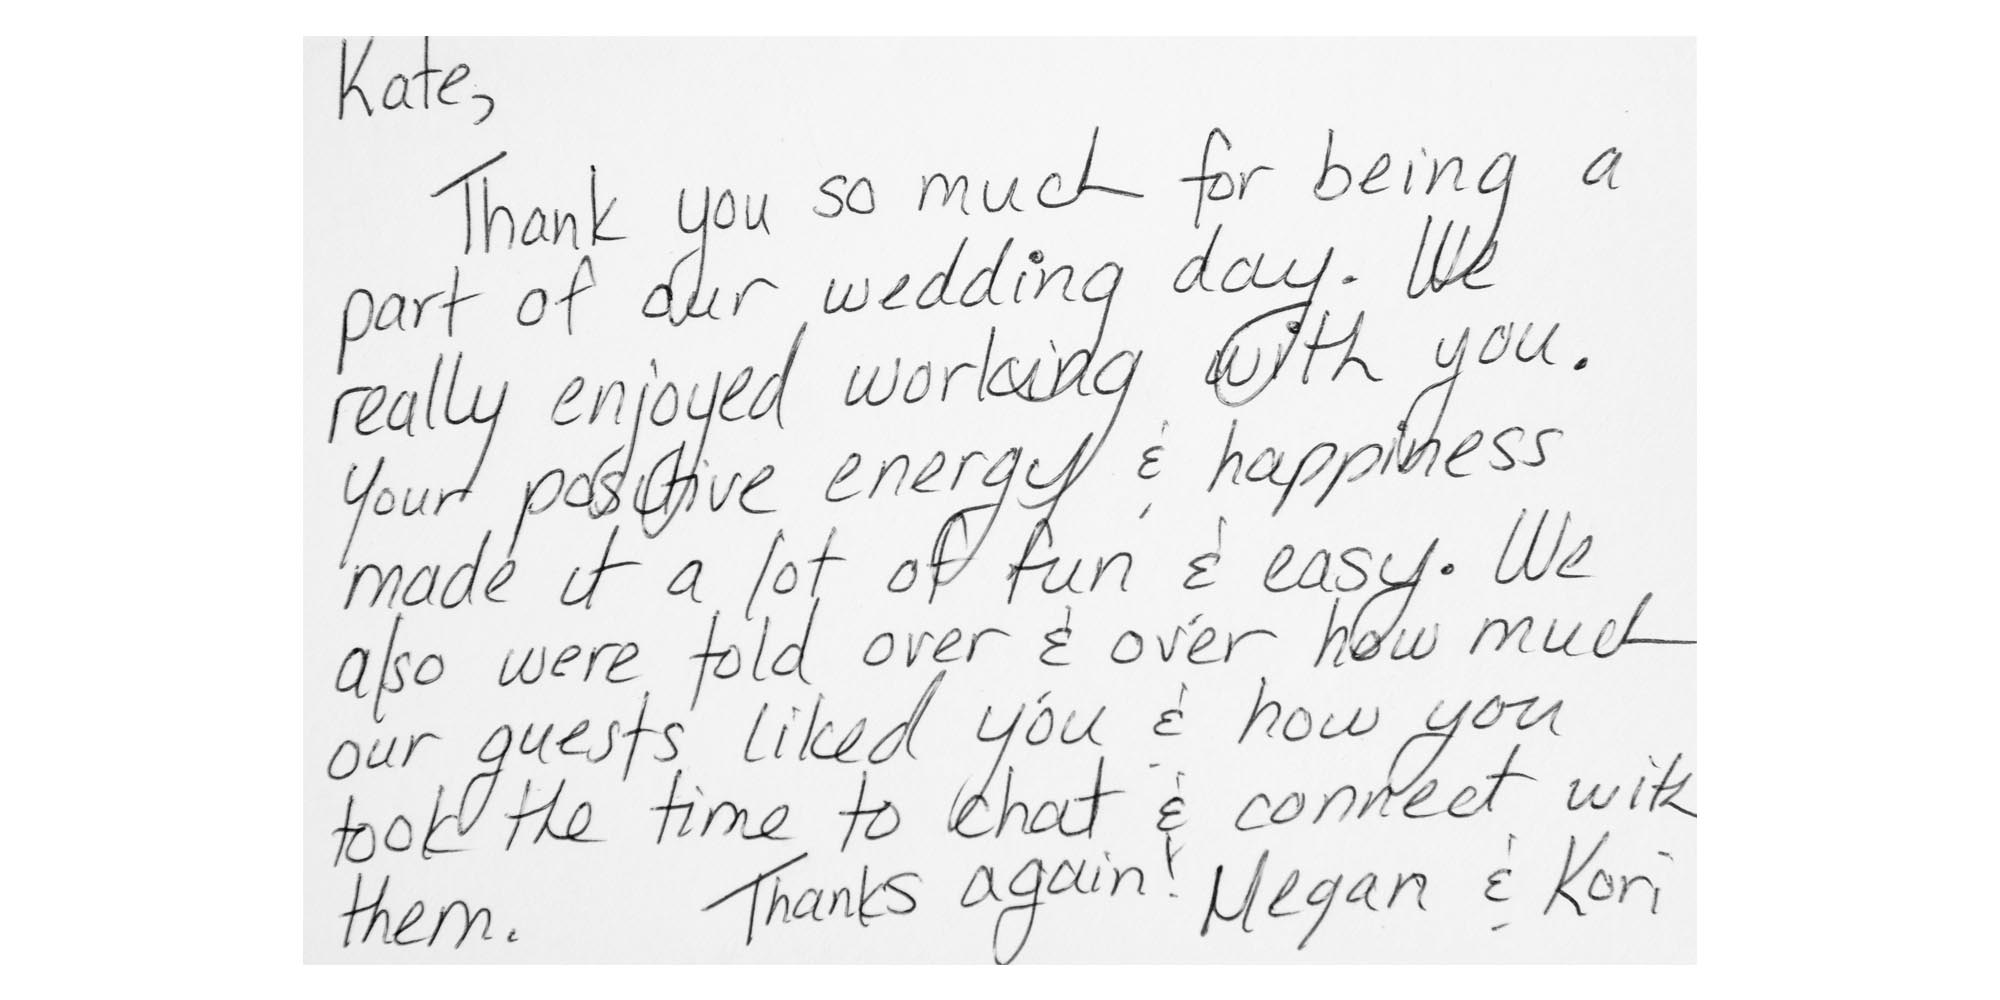 Kate,
Thank you so much for being a
part of our wedding day. We
really enjoyed working with you.
Your positive energy & happiness
made it a lot of fun & easy. We
also were told over & over how much
our guests liked you & how you
took the time to chat & connect with
them. Thanks again! Megan & Kori